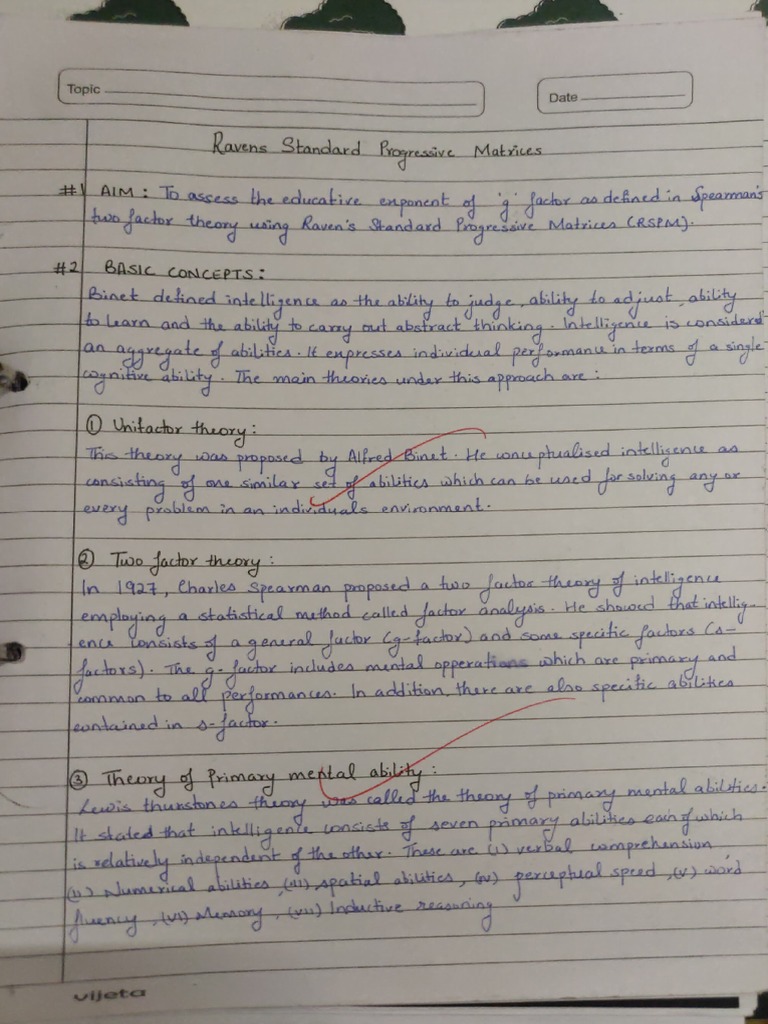 Topic
Date
Ravens Standard Progressive Matrices
#1 AIM : To assess the educative enponent of 'g' factor as defined in Spearman's
two factor theory using Raven's Standard Progressive Matrices (RSPM).
#2 BASIC CONCEPTS :
Binet defined intelligence as the ability to judge, ability to adjust, ability
to learn and the ability to carry out abstract thinking. Intelligence is considered
an aggregate of abilities. It enpresses individual performance in terms of a single
cognitive ability. The main theories under this approach are :
① Unifactor theory :
This theory was proposed by Alfred Binet. He conceptualised intelligence as
consisting of one similar set of abilities which can be used for solving any or
every problem in an individuals environment.
② Two factor theory :
In 1927, Charles Spearman proposed a two factor theory of intelligence
employing a statistical method called factor analysis. He showed that intellig-
ence consists of a general factor (g-factor) and some specific factors (s-
factors). The g-factor includes mental opperations which are primary and
common to all performances. In addition, there are also specific abilities
contained in s-factor.
③ Theory of Primary mental ability :
Lewis thurstones theory was called the theory of primary mental abilities.
It stated that intelligence consists of seven primary abilities each of which
is relatively independent of the other. These are (i) verbal comprehension
(ii) Numerical abilities, (iii) spatial abilities, (iv) perceptual speed, (v) word
fluency, (vi) Memory, (vii) Inductive reasoning
vijeta